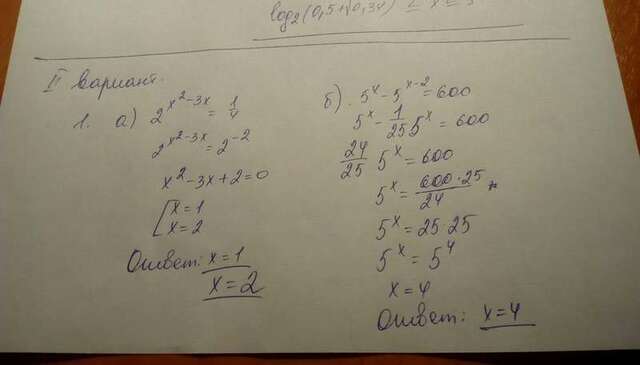 II вариант.
1. а) 2^{x^2-3x} = 1/4
2^{x^2-3x} = 2^{-2}
x^2-3x+2=0
[x=1
x=2
Ответ: x=1
x=2
б). 5^x - 5^{x-2} = 600
5^x - 1/25 5^x = 600
24/25 5^x = 600
5^x = 600·25/24
5^x = 25·25
5^x = 5^4
x=4
Ответ: x=4